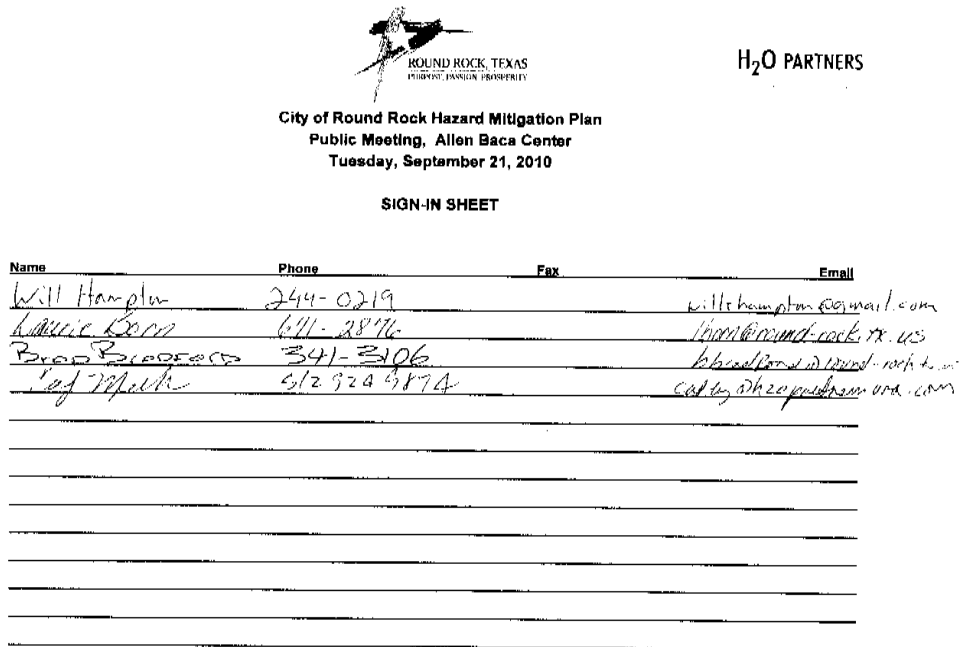 ROUND ROCK, TEXAS
PURPOSE. PASSION. PROSPERITY.
H2O PARTNERS
City of Round Rock Hazard Mitigation Plan
Public Meeting, Allen Baca Center
Tuesday, September 21, 2010
SIGN-IN SHEET
Name Phone Fax Email
Will Hampton 244-0219 willshampton@gmail.com
Laurie Born 671-2876 round-rock.tx.us
Brad Bradford 341-3106 bbradford@round-rock.tx.us
512 924 9874